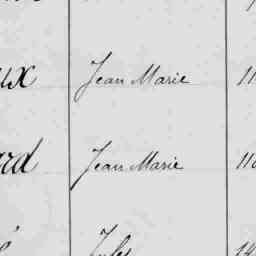 ux Jean Marie 11
ard Jean Marie 11
Jules 14